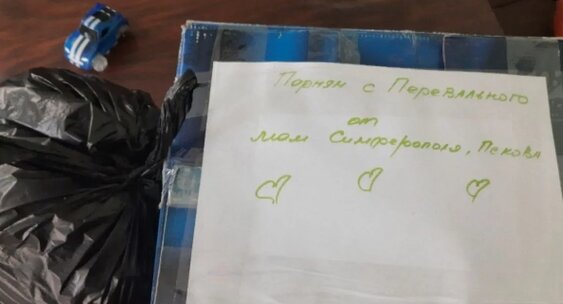 Парням с Перевального
от
мам Симферополя, Пскова